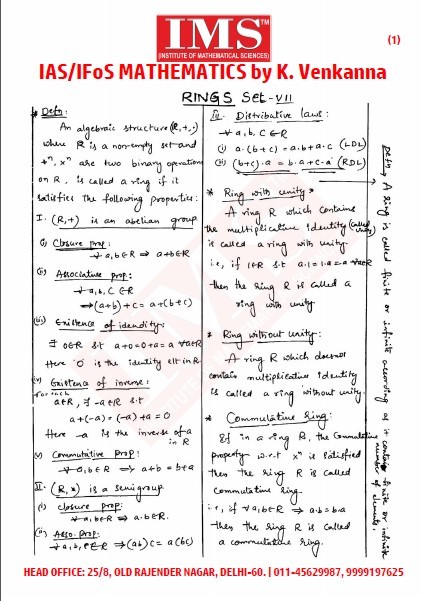 IMS™
(INSTITUTE OF MATHEMATICAL SCIENCES)
(1)
IAS/IFoS MATHEMATICS by K. Venkanna
RINGS Set-VII
* Defn:
An algebraic structure (R,+,·)
where R is a non-empty set and
+ⁿ, xⁿ are two binary operations
on R, is called a ring if it
satisfies the following properties:
I. (R,+) is an abelian group
(i) Closure prop:
∀ a,b∈R ⇒ a+b∈R
(ii) Associative prop:
∀ a,b,c ∈R
⇒(a+b)+c = a+(b+c)
(iii) Existence of identity:
∃ 0∈R s.t a+0=0+a=a ∀a∈R
Here '0' is the identity elt in R
(iv) Existence of inverse:
for each
a∈R, ∃ -a∈R s.t
a+(-a) = (-a)+a = 0
Here -a is the inverse of a
in R
(v) Commutative Prop:
∀ a,b∈R ⇒ a+b = b+a
II. (R,x) is a semigroup
(i) closure prop:
∀ a,b∈R ⇒ a.b∈R.
(ii) Asso. prop:
∀ a,b,c∈R ⇒ (ab)c = a(bc)
III. Distributive laws:
∀ a,b,c∈R
(i) a.(b+c) = a.b+a.c (LDL)
(ii) (b+c).a = b.a+c.a (RDL)
* Ring with unity:
A ring R which contains
the multiplicative identity (called unity)
is called a ring with unity.
i.e, if 1∈R s.t a.1=1.a=a ∀a∈R
then the ring R is called a
ring with unity
* Ring without unity:
A ring R which does not
contain multiplicative identity
is called a ring without unity.
* Commutative Ring:
If in a ring R, the Commutative
property w.r.t xⁿ is satisfied
then the ring R is called
commutative ring.
i.e, if ∀ a,b∈R ⇒ a.b=b.a
then the ring R is called
a commutative ring.
Defn → A ring is called finite or infinite according as it contains finite or infinite
number of elements.
HEAD OFFICE: 25/8, OLD RAJENDER NAGAR, DELHI-60. | 011-45629987, 9999197625